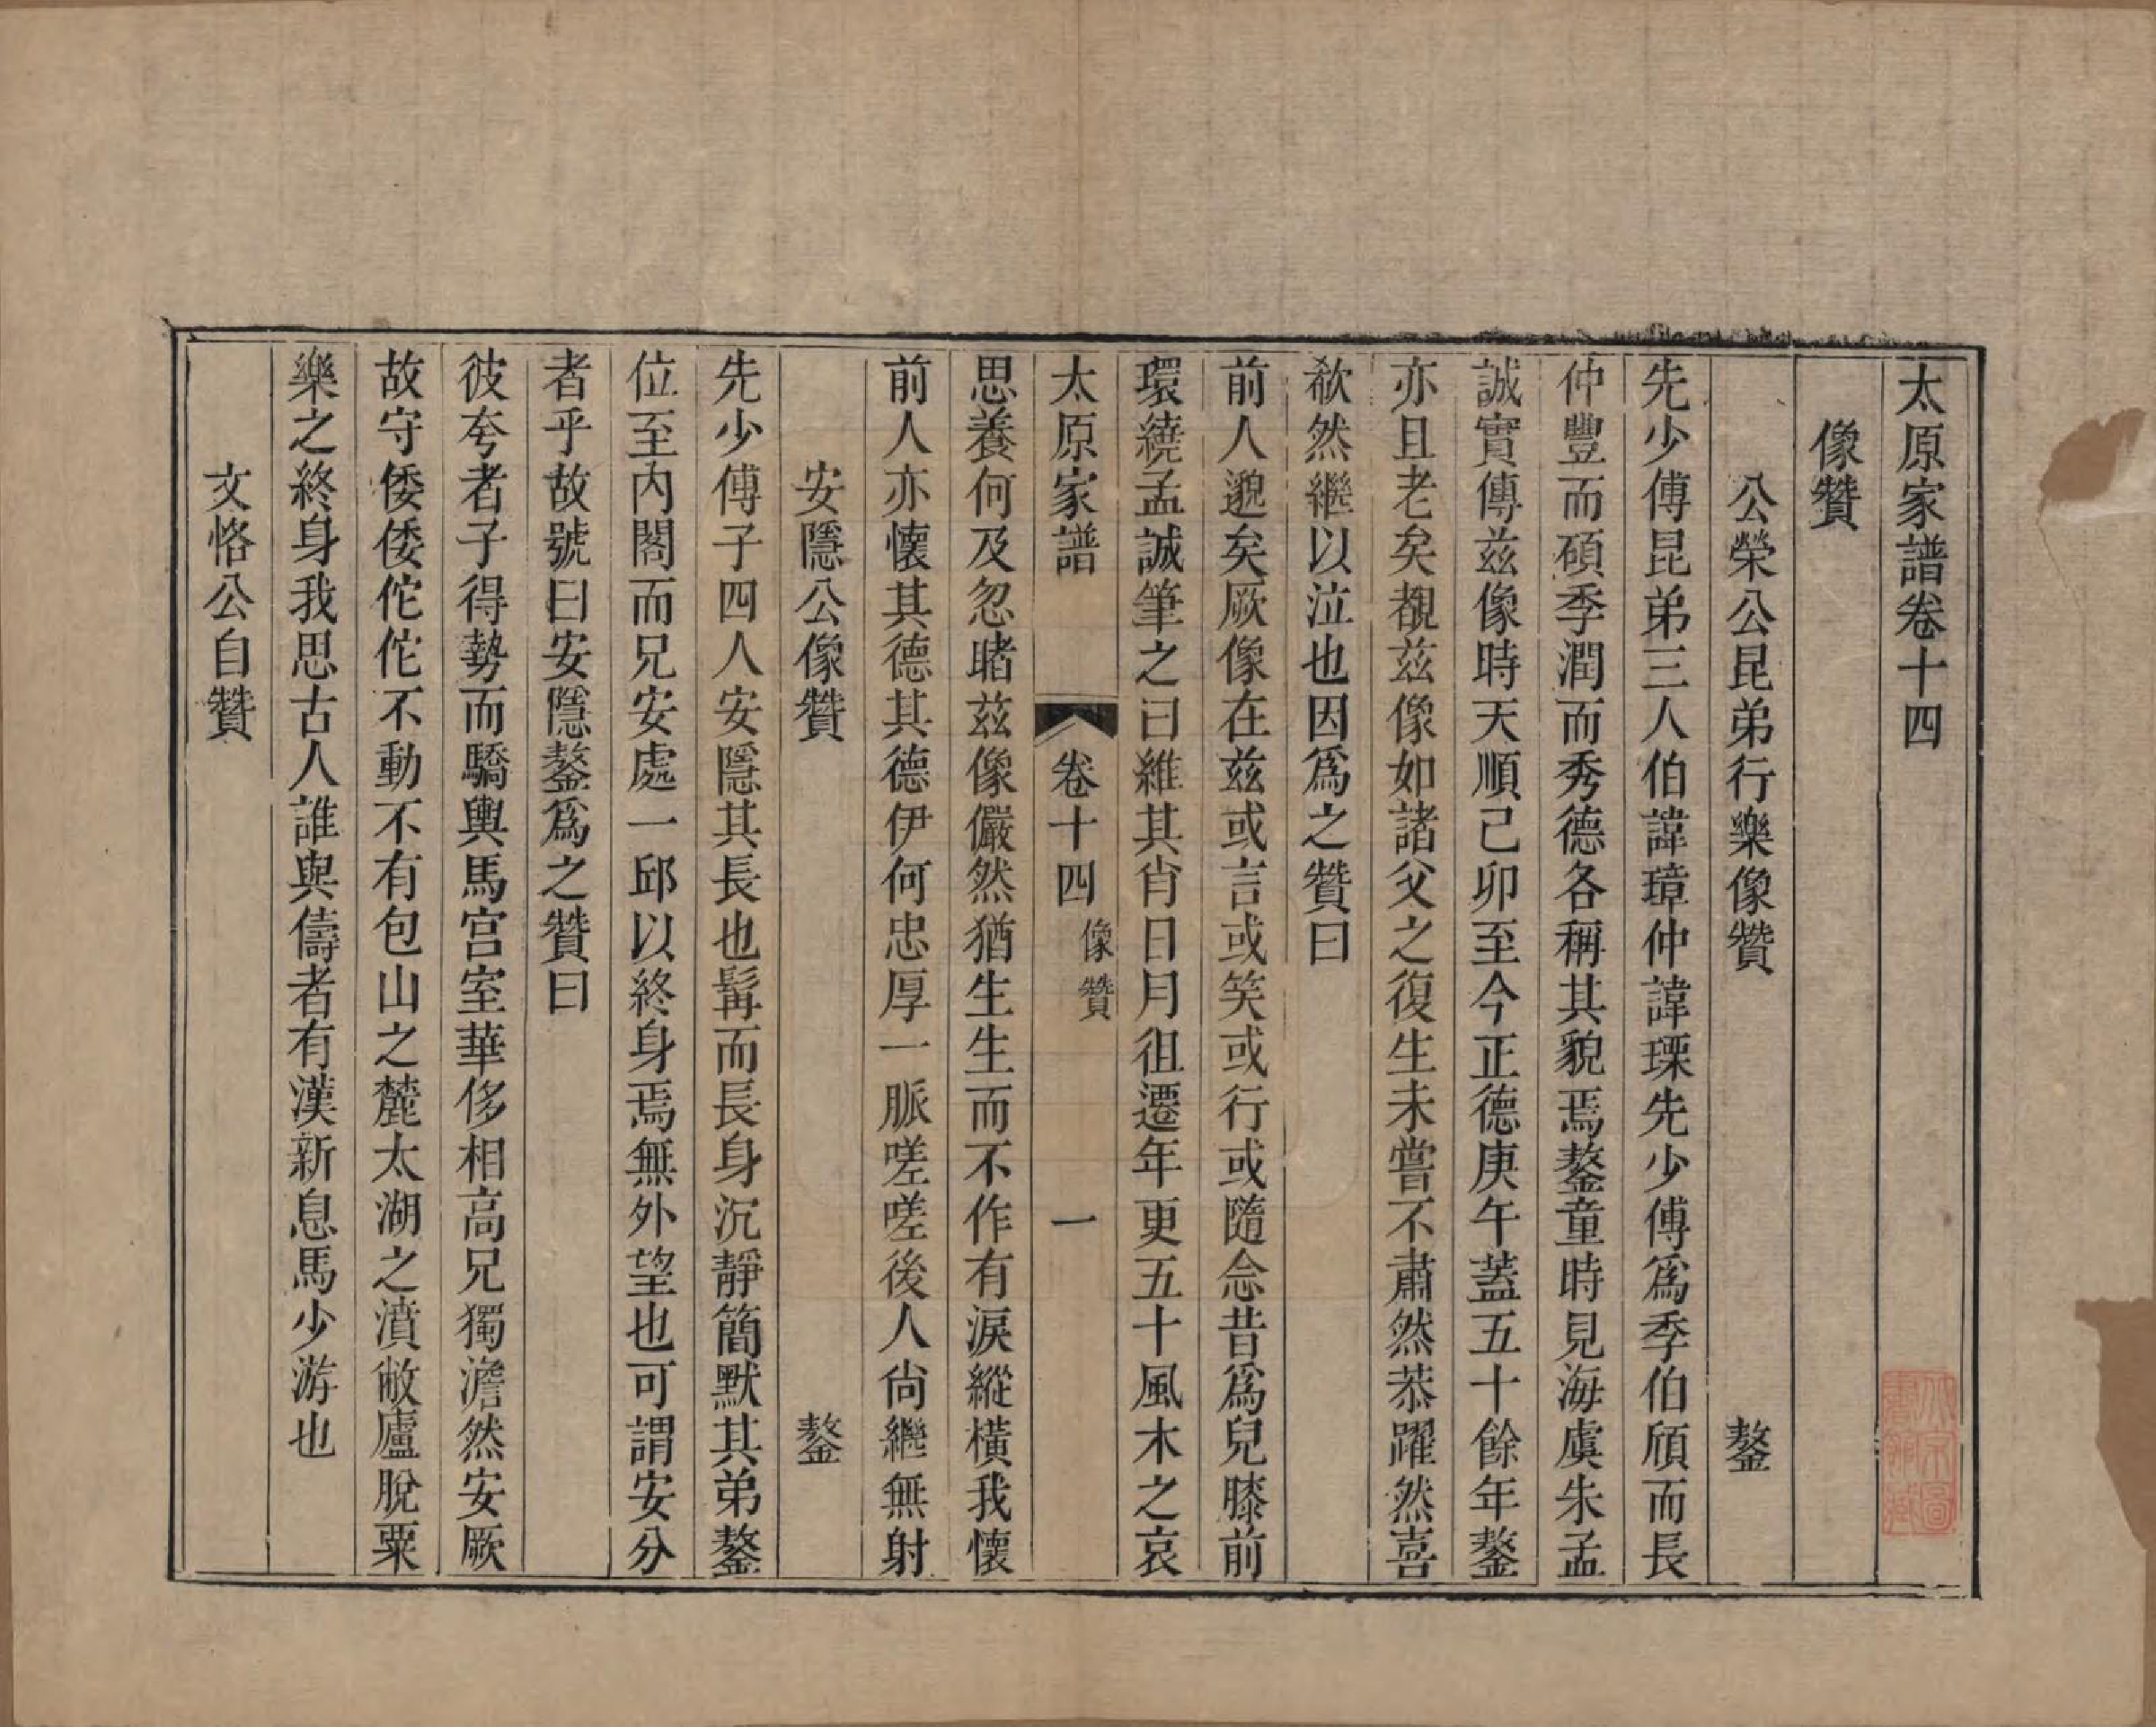 太原家譜卷十四
像贊
公榮公昆弟行樂像贊　鏊
先少傅昆弟三人伯諱璋仲諱瑮先少傅爲季伯頎而長
仲豐而碩季潤而秀德各稱其貌焉鏊童時見海虞朱孟
誠實傳兹像時天順己卯至今正德庚午蓋五十餘年鏊
亦且老矣覩兹像如諸父之復生未嘗不肅然恭躍然喜
欷然繼以泣也因爲之贊曰
前人邈矣厥像在兹或言或笑或行或隨念昔爲兒膝前
環繞孟誠筆之曰維其肖日月徂遷年更五十風木之哀
太原家譜　卷十四　像贊　一
思養何及忽睹兹像儼然猶生生而不作有淚縱橫我懷
前人亦懷其德其德伊何忠厚一脈嗟嗟後人尙繼無射
安隱公像贊　鏊
先少傅子四人安隱其長也髯而長身沉靜簡默其弟鏊
位至内閣而兄安處一邱以終身焉無外望也可謂安分
者乎故號曰安隱鏊爲之贊曰
彼夸者子得勢而驕輿馬宫室華侈相高兄獨澹然安厥
故守倭倭佗佗不動不有包山之麓太湖之濆敝廬脫粟
樂之終身我思古人誰與儔者有漢新息馬少游也
文恪公自贊